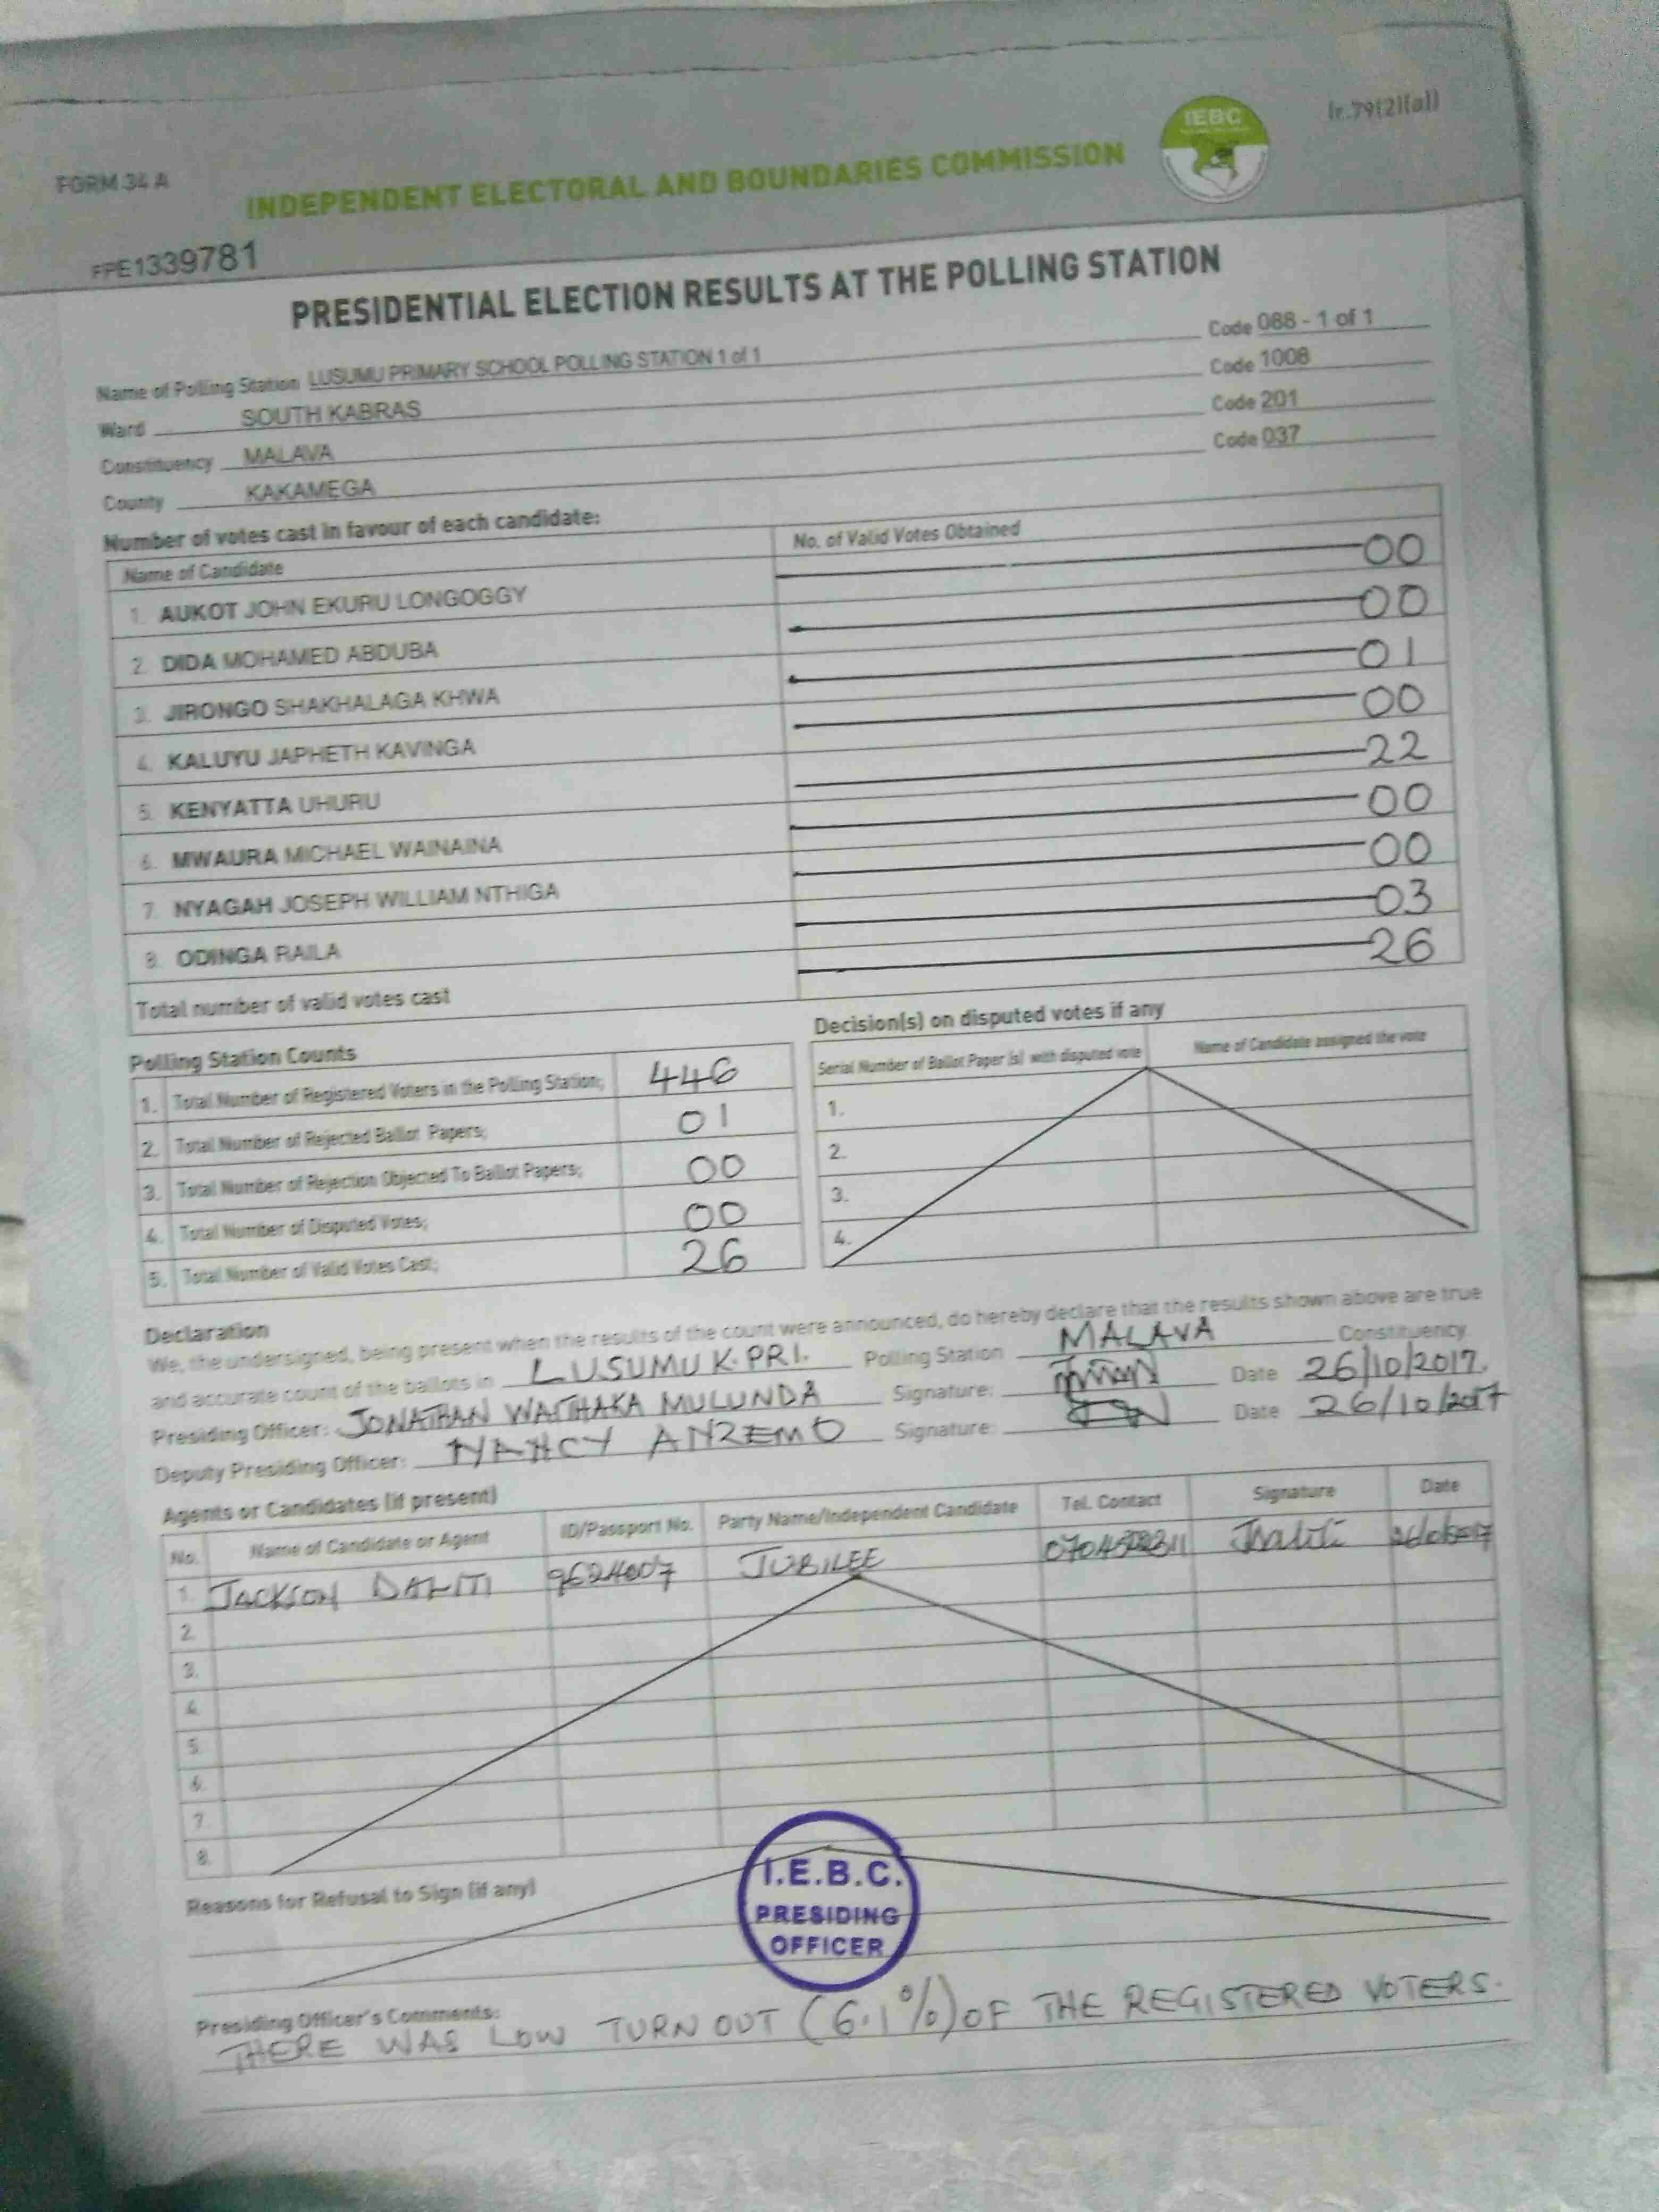 (r.79(2)(a))
FORM 34 A
INDEPENDENT ELECTORAL AND BOUNDARIES COMMISSION
IEBC
FPE1339781
PRESIDENTIAL ELECTION RESULTS AT THE POLLING STATION
Name of Polling Station LUSUMU PRIMARY SCHOOL POLLING STATION 1 of 1 Code 088 - 1 of 1
Ward SOUTH KABRAS Code 1008
Constituency MALAVA Code 201
County KAKAMEGA Code 037
Number of votes cast in favour of each candidate:
Name of Candidate No. of Valid Votes Obtained
1. AUKOT JOHN EKURU LONGOGGY 00
2. DIDA MOHAMED ABDUBA 00
3. JIRONGO SHAKHALAGA KHWA 01
4. KALUYU JAPHETH KAVINGA 00
5. KENYATTA UHURU 22
6. MWAURA MICHAEL WAINAINA 00
7. NYAGAH JOSEPH WILLIAM NTHIGA 00
8. ODINGA RAILA 03
Total number of valid votes cast 26
Polling Station Counts
1. Total Number of Registered Voters in the Polling Station; 446
2. Total Number of Rejected Ballot Papers; 01
3. Total Number of Rejection Objected To Ballot Papers; 00
4. Total Number of Disputed Votes; 00
5. Total Number of Valid Votes Cast; 26
Decision(s) on disputed votes if any
Serial Number of Ballot Paper (s) with disputed vote Name of Candidate assigned the vote
1.
2.
3.
4.
Declaration
We, the undersigned, being present when the results of the count were announced, do hereby declare that the results shown above are true
and accurate count of the ballots in LUSUMU K. PRI. Polling Station MALAVA Constituency
Presiding Officer: JONATHAN WAITHAKA MULUNDA Signature: Date 26/10/2017.
Deputy Presiding Officer: NANCY ANZEMO Signature: Date 26/10/2017
Agents or Candidates (if present)
No. Name of Candidate or Agent ID/Passport No. Party Name/Independent Candidate Tel. Contact Signature Date
1. JACKSON DALITI JUBILEE
2.
3.
4.
5.
6.
7.
8.
Reasons for Refusal to Sign (if any)
I.E.B.C.
PRESIDING
OFFICER
Presiding Officer's Comments:
THERE WAS LOW TURN OUT (6.1%) OF THE REGISTERED VOTERS.